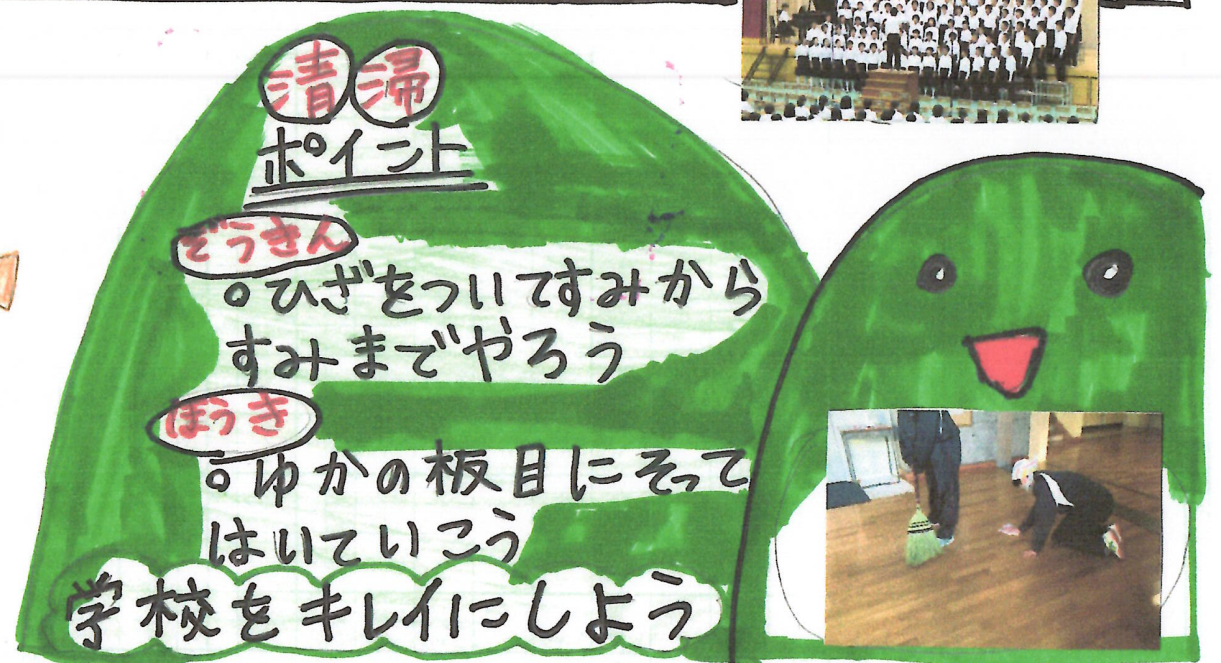 清掃
ポイント
ぞうきん
○ひざをついてすみから
すみまでやろう
ほうき
○ゆかの板目にそって
はいていこう
学校をキレイにしよう